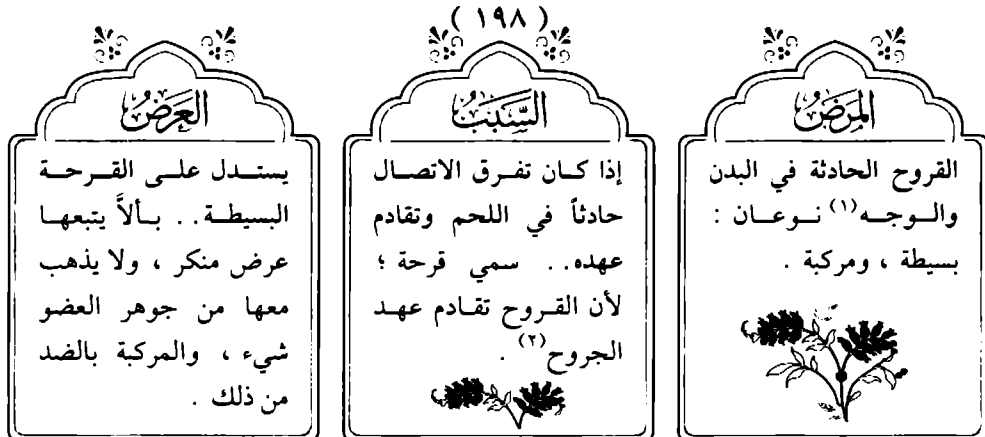 ( ١٩٨ )
المَرَضُ
القروح الحادثة في البدن
والـوجـه(١) نـوعـان :
بسيطة ، ومركبة .
السَّبَبُ
إذا كـان تفـرق الاتصـال
حادثاً في اللحم وتقادم
عهده.. سمي قرحة ؛
لأن القـروح تقـادم عهـد
الجروح(٢) .
العَرَضُ
يستـدل علـى القـرحـة
البسيطـة.. بـألاَّ يتبعهـا
عرض منكر ، ولا يذهب
معها من جوهر العضو
شيء ، والمركبة بالضد
من ذلك .